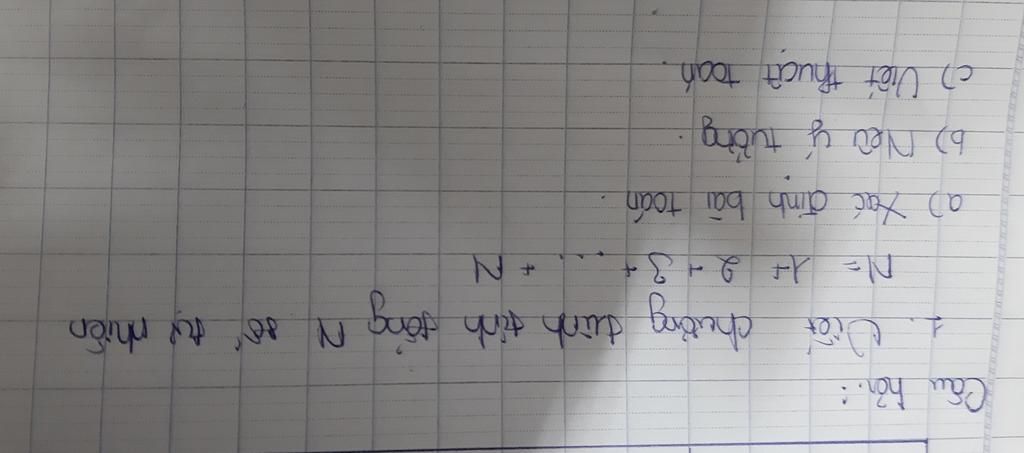 Câu hỏi:
1. Viết chương trình tính tổng N số tự nhiên
N = 1 + 2 + 3 + ... + N
a) Xác định bài toán.
b) Nêu ý tưởng.
c) Viết thuật toán.